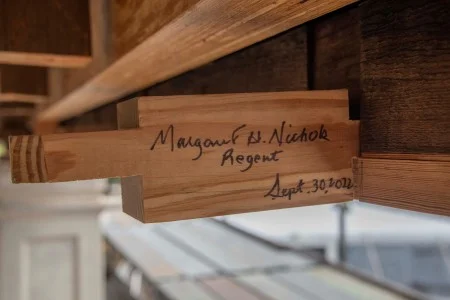 Margaret H. Nichols
Regent
Sept. 30, 2022